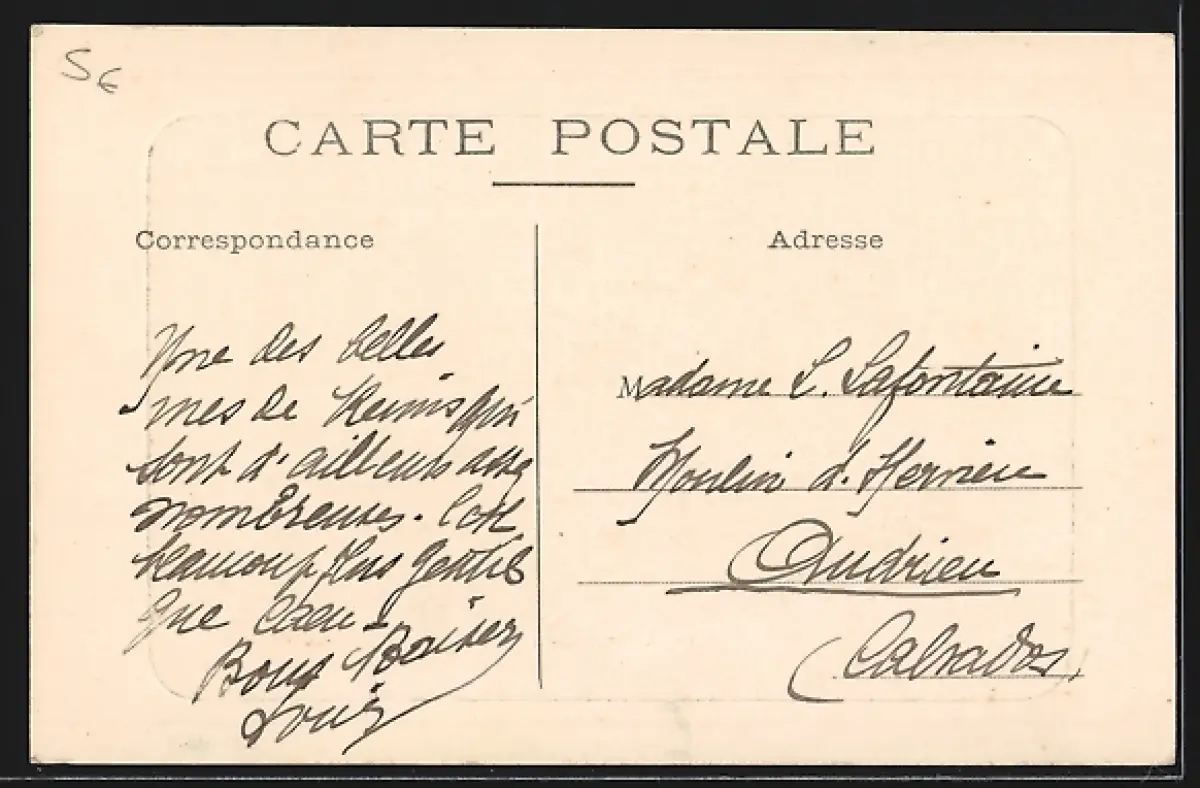 5€
CARTE POSTALE
Correspondance
Adresse
Une des belles
rues de Reims qui
sont d'ailleurs assez
nombreuses. C'est
beaucoup plus gentil
que Caen -
Bons Baisers
Louis
Madame L. Lafontaine
Moulin d. Hervieu
Audrieu
Calvados